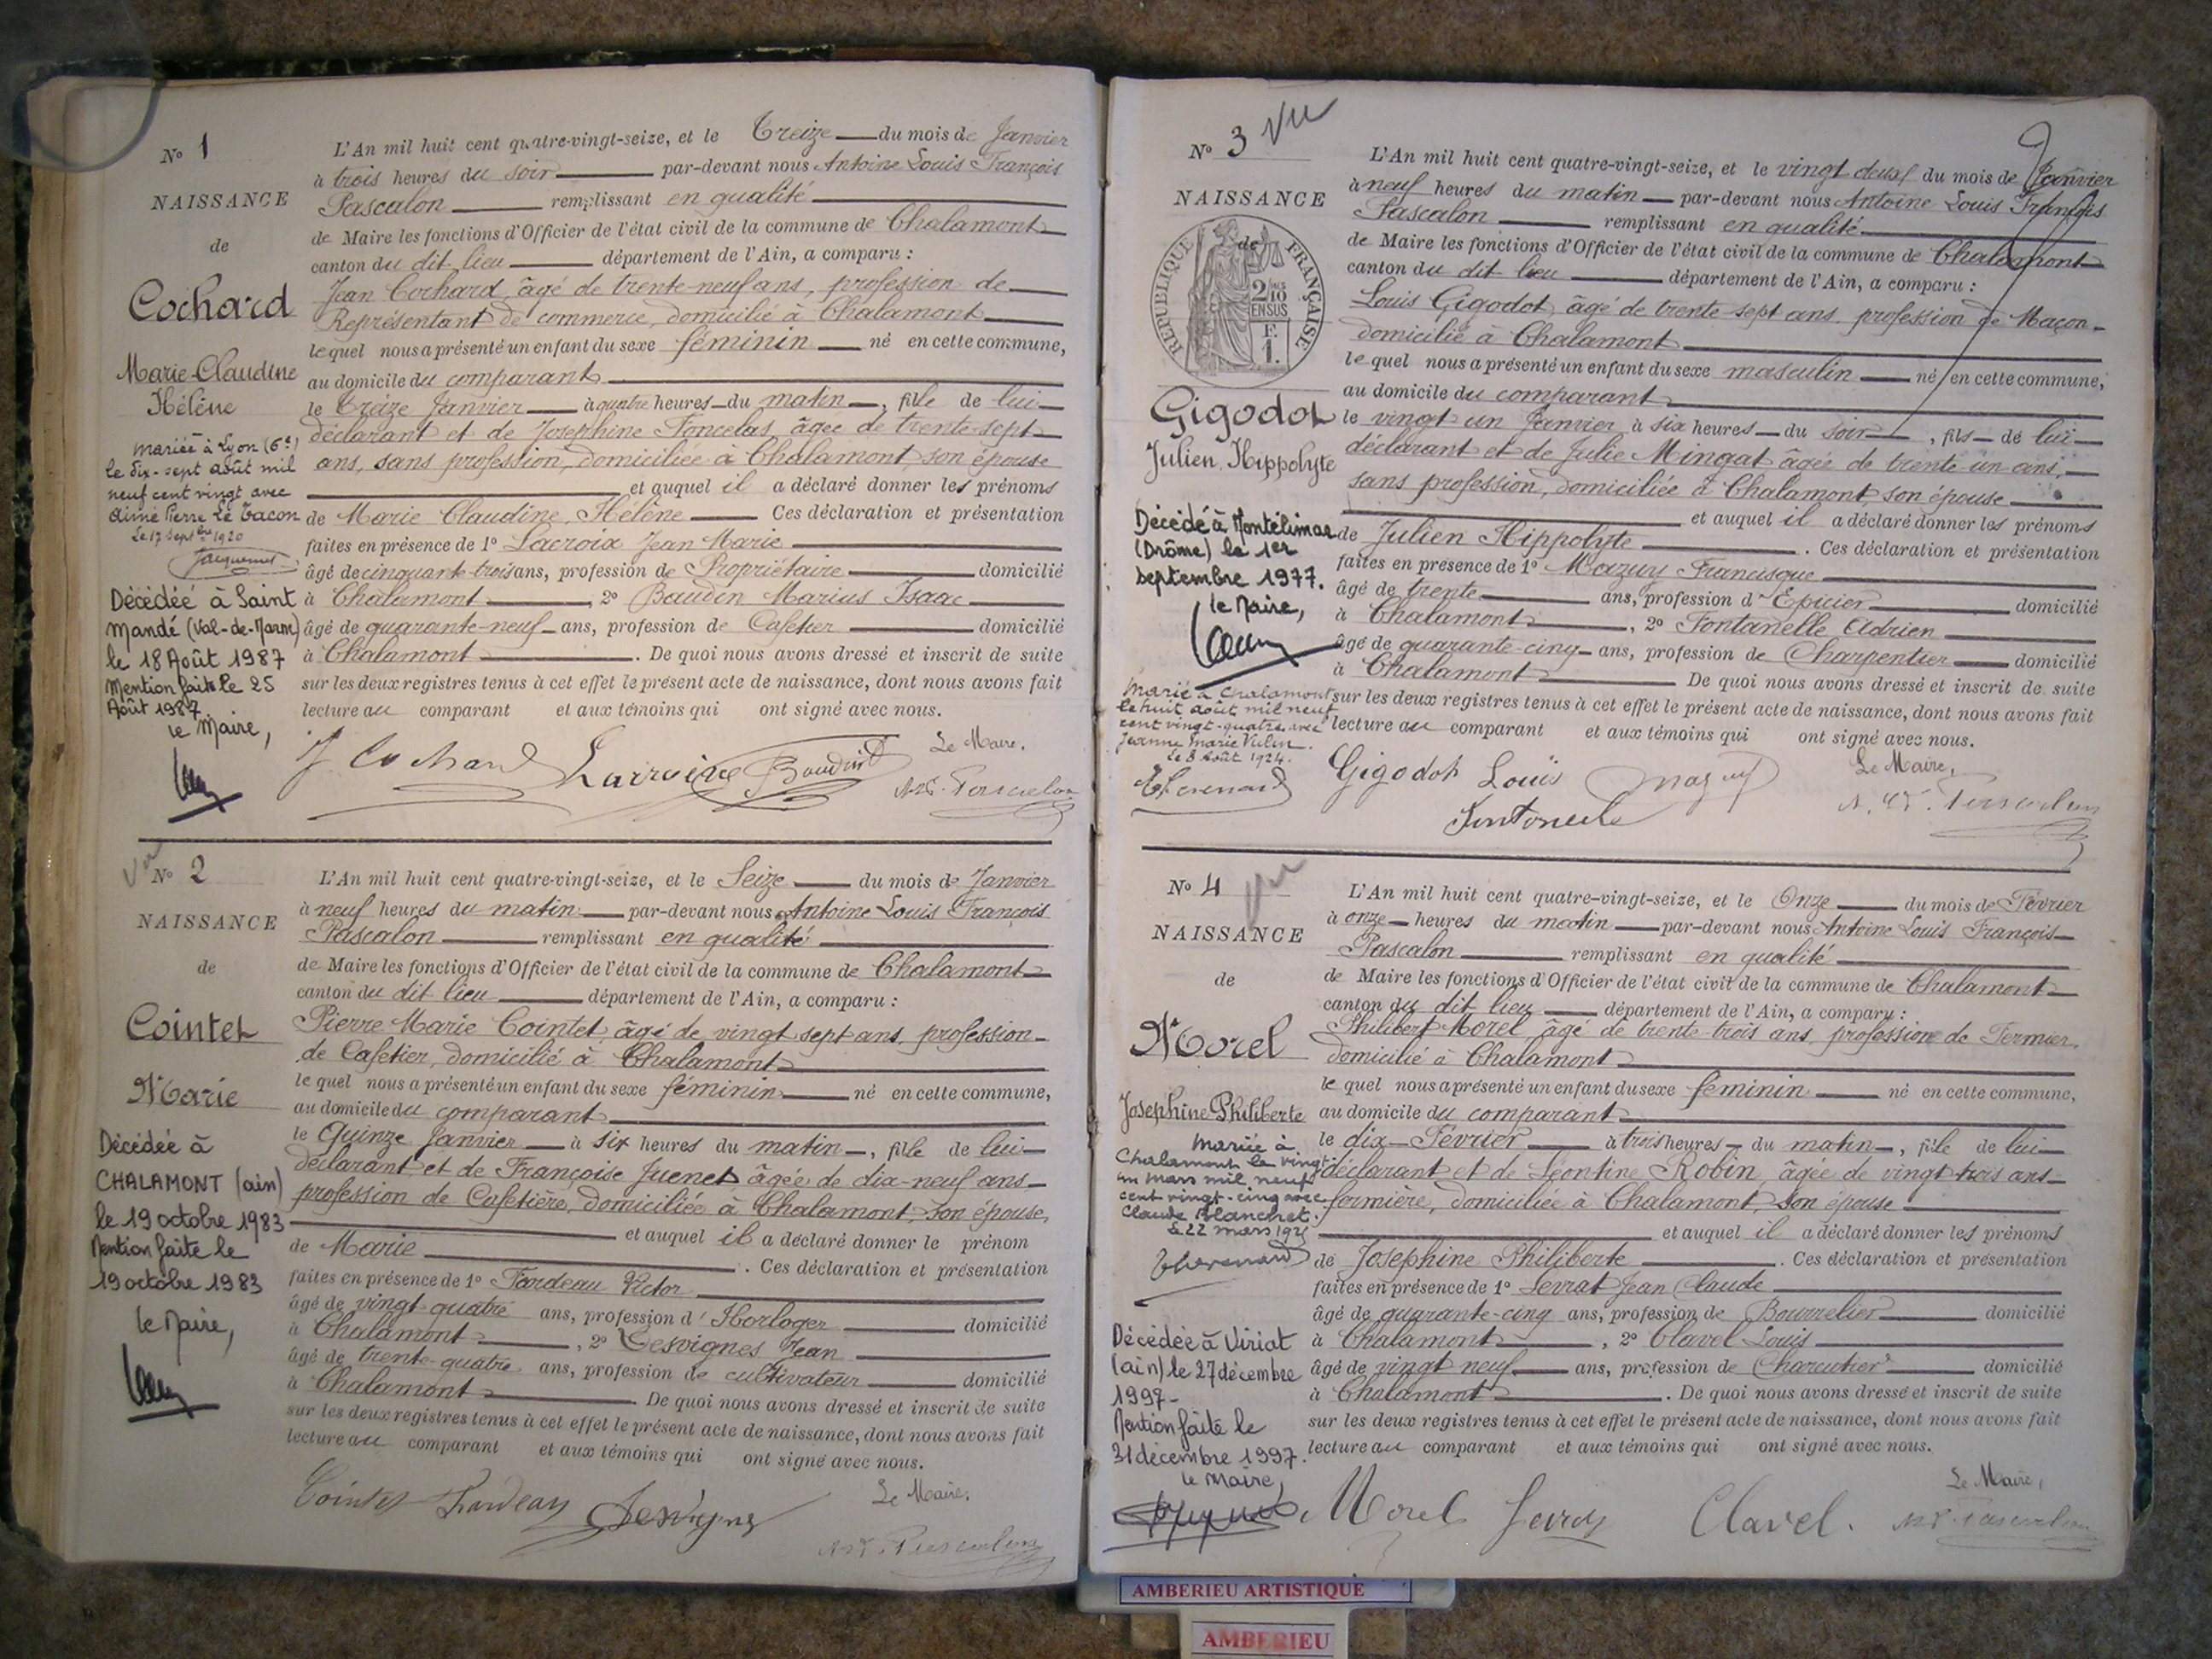 N° 1
NAISSANCE
de
Cochard
Marie-Claudine
Hélène
mariée à Lyon (6e)
le dix-sept août mil
neuf cent vingt avec
Aimé Pierre Le Tacon
Le 17 Septbre 1920
Décédée à Saint
Mandé (Val-de-Marne)
le 18 Août 1987
Mention faite le 25
Août 1987
le Maire,
L'An mil huit cent quatre-vingt-seize, et le Treize du mois de Janvier
à trois heures du soir par-devant nous Antoine Louis François
Pascalon remplissant en qualité
de Maire les fonctions d'Officier de l'état civil de la commune de Chalamont
canton du dit lieu département de l'Ain, a comparu :
Jean Cochard, âgé de trente-neuf ans, profession de
Représentant de commerce, domicilié à Chalamont
lequel nous a présenté un enfant du sexe féminin né en cette commune,
au domicile du comparant
le Treize Janvier à quatre heures du matin, fille de lui
déclarant et de Josephine Foncelas, âgée de trente-sept
ans, sans profession, domiciliée à Chalamont, son épouse
et auquel il a déclaré donner les prénoms
de Marie Claudine, Hélène Ces déclaration et présentation
faites en présence de 1° Lacroix Jean Marie
âgé de cinquante-trois ans, profession de Propriétaire domicilié
à Chalamont, 2° Baudin Marius Isaac
âgé de quarante-neuf ans, profession de Cafetier domicilié
à Chalamont. De quoi nous avons dressé et inscrit de suite
sur les deux registres tenus à cet effet le présent acte de naissance, dont nous avons fait
lecture au comparant et aux témoins qui ont signé avec nous.
Le Maire.
J Cochard Lacroix Baudin
Vu
N° 2
NAISSANCE
de
Cointet
Marie
Décédée à
CHALAMONT (ain)
le 19 octobre 1983
Mention faite le
19 octobre 1983
le Maire,
L'An mil huit cent quatre-vingt-seize, et le Seize du mois de Janvier
à neuf heures du matin par-devant nous Antoine Louis François
Pascalon remplissant en qualité
de Maire les fonctions d'Officier de l'état civil de la commune de Chalamont
canton du dit lieu département de l'Ain, a comparu :
Pierre-Marie Cointet, âgé de vingt sept ans, profession
de Cafetier, domicilié à Chalamont
le quel nous a présenté un enfant du sexe féminin né en cette commune,
au domicile du comparant
le Quinze Janvier à six heures du matin, fille de lui
déclarant et de Françoise Juenet âgée de dix-neuf ans
profession de Cafetière, domiciliée à Chalamont, son épouse,
et auquel il a déclaré donner le prénom
de Marie. Ces déclaration et présentation
faites en présence de 1° Fardeau Victor
âgé de vingt-quatre ans, profession d'Horloger domicilié
à Chalamont, 2° Desvignes Jean
âgé de trente-quatre ans, profession de cultivateur domicilié
à Chalamont De quoi nous avons dressé et inscrit de suite
sur les deux registres tenus à cet effet le présent acte de naissance, dont nous avons fait
lecture au comparant et aux témoins qui ont signé avec nous.
Le Maire.
Cointet Fardeau Desvignes
N° 3 Vu
NAISSANCE
de
REPUBLIQUE FRANÇAISE
2/10 EN SUS
F.
1.
Gigodot
Julien, Hippolyte
Décédé à Montélimar
(Drôme) le 1er
septembre 1977.
le Maire,
Marié à Chalamont
le huit août mil neuf
cent vingt-quatre avec
Jeanne Marie
Le 8 Août 1924.
Thevenard
L'An mil huit cent quatre-vingt-seize, et le vingt deux du mois de Janvier
à neuf heures du matin par-devant nous Antoine Louis François
Pascalon remplissant en qualité
de Maire les fonctions d'Officier de l'état civil de la commune de Chalamont
canton du dit lieu département de l'Ain, a comparu :
Louis Gigodot, âgé de trente-sept ans, profession de Maçon
domicilié à Chalamont
le quel nous a présenté un enfant du sexe masculin né en cette commune,
au domicile du comparant
le vingt-un Janvier à six heures du soir, fils de lui
déclarant et de Julie Mingat âgée de trente-un ans,
sans profession, domiciliée à Chalamont, son épouse
et auquel il a déclaré donner les prénoms
de Julien Hippolyte. Ces déclaration et présentation
faites en présence de 1° Mazuy Francisque
âgé de trente ans, profession d'Epicier domicilié
à Chalamont, 2° Fontanelle Adrien
âgé de quarante-cinq ans, profession de Charpentier domicilié
à Chalamont De quoi nous avons dressé et inscrit de suite
sur les deux registres tenus à cet effet le présent acte de naissance, dont nous avons fait
lecture au comparant et aux témoins qui ont signé avec nous.
Le Maire,
Gigodot Louis Mazuy
Fontanelle
N° 4 Vu
NAISSANCE
de
Morel
Josephine Philiberte
Mariée à
Chalamont le vingt-
un mars mil neuf
cent vingt-cinq avec
Claude Blanchet.
Le 22 mars 1925
Thevenard
Décédée à Viriat
(ain) le 27 décembre
1997-
Mention faite le
31 décembre 1997.
le Maire,
L'An mil huit cent quatre-vingt-seize, et le Onze du mois de Février
à onze heures du matin par-devant nous Antoine Louis François
Pascalon remplissant en qualité
de Maire les fonctions d'Officier de l'état civil de la commune de Chalamont
canton du dit lieu département de l'Ain, a comparu :
Philibert Morel, âgé de trente-trois ans, profession de Fermier,
domicilié à Chalamont
le quel nous a présenté un enfant du sexe féminin né en cette commune,
au domicile du comparant
le dix Février à trois heures du matin, fille de lui
déclarant et de Léontine Robin, âgée de vingt trois ans
fermière, domiciliée à Chalamont, son épouse
et auquel il a déclaré donner les prénoms
de Josephine Philiberte. Ces déclaration et présentation
faites en présence de 1° Servat Jean Claude
âgé de quarante-cinq ans, profession de Bourrelier domicilié
à Chalamont, 2° Clavel Louis
âgé de vingt neuf ans, profession de Charcutier domicilié
à Chalamont. De quoi nous avons dressé et inscrit de suite
sur les deux registres tenus à cet effet le présent acte de naissance, dont nous avons fait
lecture au comparant et aux témoins qui ont signé avec nous.
Le Maire,
Morel Clavel.
AMBERIEU ARTISTIQUE
AMBERIEU